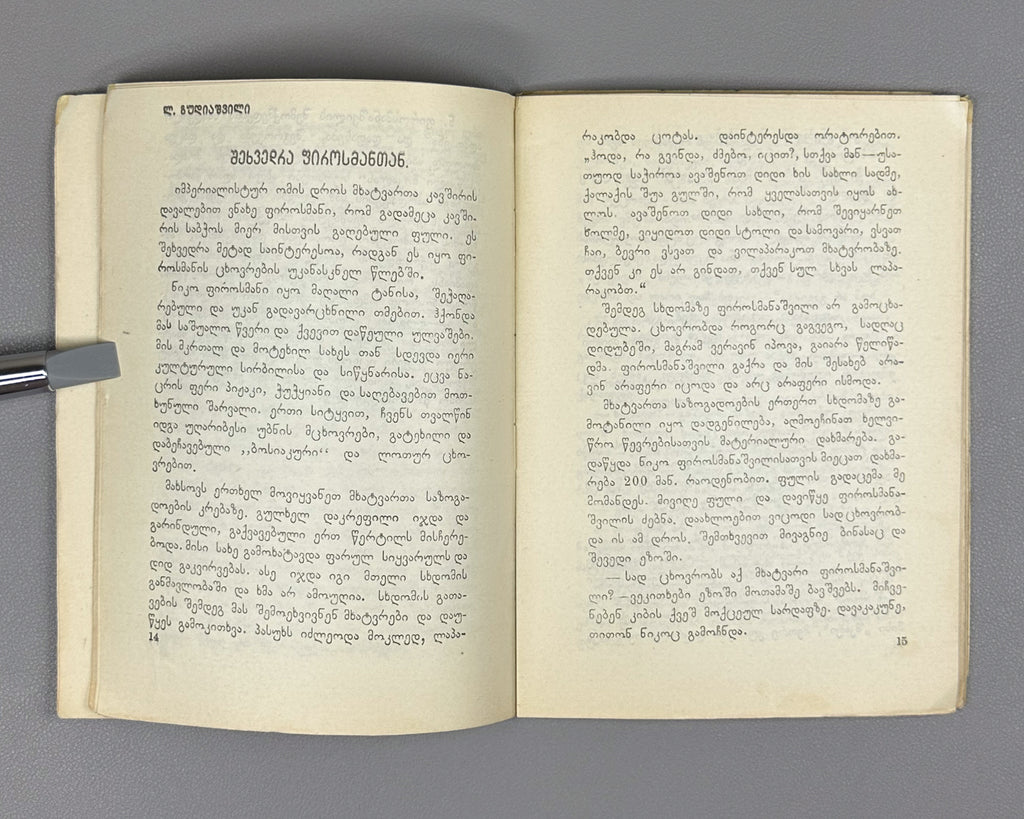 ლ. გუდიაშვილი
შეხვედრა ფიროსმანთან.
იმპერიალისტურ ომის დროს მხატვართა კავშირის
დავალებით ვნახე ფიროსმანი, რომ გადამეცა კავში-
რის საბჭოს მიერ მისთვის გაღებული ფული. ეს
შეხვედრა მეტად საინტერესოა, რადგან ეს იყო ფი-
როსმანის ცხოვრების უკანასკნელ წლებში.
ნიკო ფიროსმანი იყო მაღალი ტანისა, შეჭაღა-
რებული და უკან გადავარცხნილი თმებით. ჰქონდა
მას საშუალო წვერი და ქვევით დაწეული ულვაშები.
მის მკრთალ და მოტეხილ სახეს თან სდევდა იერი
კულტურული სირბილისა და სიწყნარისა. ეცვა ნა-
ცრის ფერი პიჯაკი, ჭუჭყიანი და საღებავებით მოთ-
ხუნული შარვალი. ერთი სიტყვით, ჩვენს თვალწინ
იდგა უღარიბესი უბნის მცხოვრები, გატეხილი და
დაბეჩავებული ,,ბოსიაკური‘‘ და ლოთურ ცხო-
ვრებით.
მახსოვს ერთხელ მოვიყვანეთ მხატვართა საზოგა-
დოების კრებაზე. გულხელ დაკრეფილი იჯდა და
გარინდული, გაქვავებული ერთ წერტილს მისჩერე-
ბოდა. მისი სახე გამოხატავდა ფარულ სიყვარულს და
დიდ გაკვირვებას. ასე იჯდა იგი მთელი სხდომის
განმავლობაში და ხმა არ ამოუღია. სხდომის გათა-
ვების შემდეგ მას შემოეხვივნენ მხატვრები და დაუ-
წყეს გამოკითხვა. პასუხს იძლეოდა მოკლედ, ლაპა-
14
რაკობდა ცოტას. დაინტერესდა ორატორებით.
„ჰოდა, რა გვინდა, ძმებო, იცით?, სთქვა მან—უსა-
თუოდ საჭიროა ავაშენოთ დიდი ხის სახლი სადმე,
ქალაქის შუა გულში, რომ ყველასათვის იყოს ახ-
ლოს. ავაშენოთ დიდი სახლი, რომ შევიყარნეთ
ხოლმე, ვიყიდოთ დიდი სტოლი და სამოვარი, ვსვათ
ჩაი, ბევრი ვსვათ და ვილაპარაკოთ მხატვრობაზე.
თქვენ კი ეს არ გინდათ, თქვენ სულ სხვას ლაპა-
რაკობთ.“
შემდეგ სხდომაზე ფიროსმანაშვილი არ გამოცხა-
დებულა. ცხოვრობდა როგორც გაგვეგო, სადღაც
დიდუბეში, მაგრამ ვერავინ იპოვა, გაიარა წელიწა-
დმა. ფიროსმანაშვილი გაქრა და მის შესახებ არა-
ვინ არაფერი იცოდა და არც არაფერი ისმოდა.
მხატვართა საზოგადოების ერთერთ სხდომაზე გა-
მოტანილი იყო დადგენილება, აღმოეჩინათ ხელვი-
წრო წევრებისათვის მატერიალური დახმარება. გა-
დაწყდა ნიკო ფიროსმანაშვილისათვის მიეცათ დახმა-
რება 200 მან. რაოდენობით. ფულის გადაცემა მე
მომანდეს. მივიღე ფული და დავიწყე ფიროსმანა-
შვილის ძებნა. დაახლოებით ვიცოდი სად ცხოვრობ-
და ის ამ დროს. შემთხვევით მივაგნიე ბინასაც და
შევედი ეზოში.
— სად ცხოვრობს აქ მხატვარი ფიროსმანაშვი-
ლი? —ვეკითხები ეზოში მოთამაშე ბავშვებს. მიჩვე-
ნებენ კიბის ქვეშ მოქცეულ სარდაფზე. დავაკაკუნე,
თითონ ნიკოც გამოჩნდა.
15